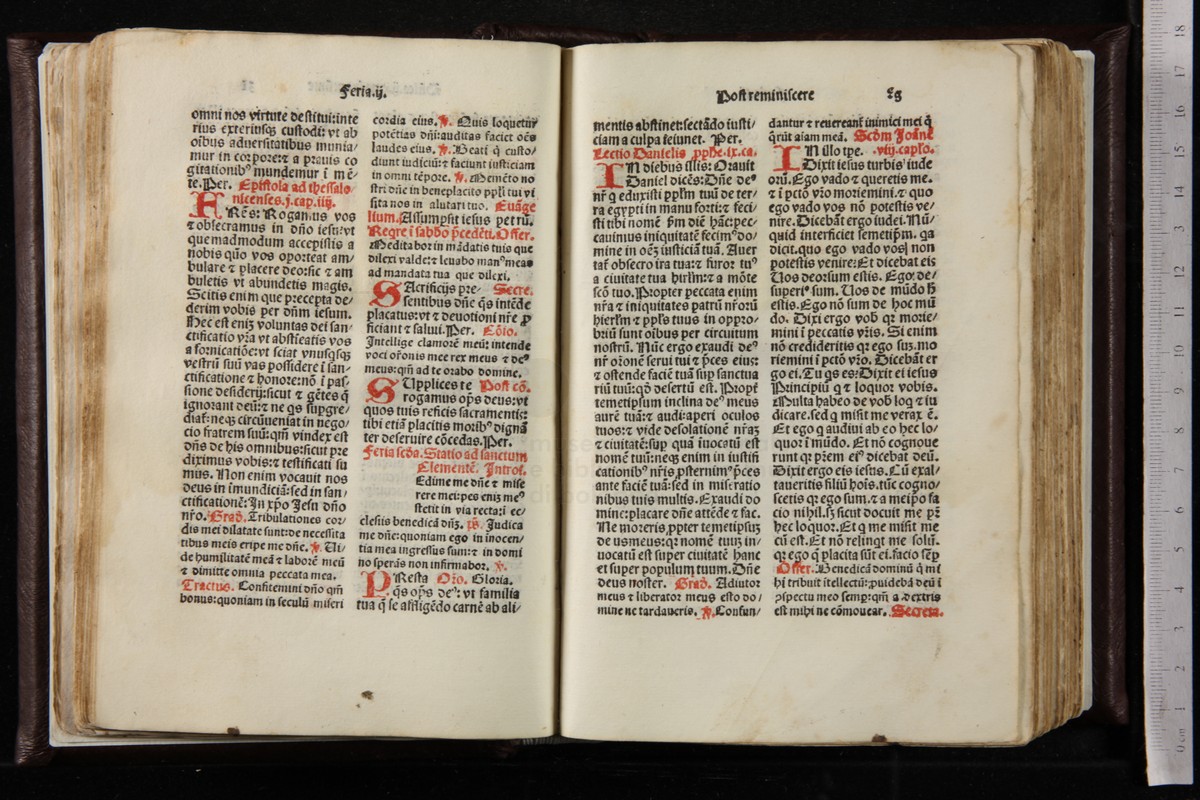 Feria.ij.
omni nos virtute destitui:inte
rius exteriusqȝ custodi: vt ab
oibus aduersitatibus munia/
mur in corpore:⁊ a prauis co
gitationibꝰ mundemur i mē
te.Per. Epistola ad thessalo
nicenses.j.cap.iiij.
FRēs: Rogamus vos
⁊ obsecramus in dño iesu:vt
quemadmodum accepistis a
nobis quo vos oporteat am/
bulare ⁊ placere deo:sic ⁊ am
buletis vt abundetis magis.
Scitis enim que precepta de/
derim vobis per dñm iesum.
Hec est eniȝ voluntas dei san/
ctificatio vra vt abstieatis vos
a fornicatiōe:vt sciat vnusqsqȝ
vestrū suū vas possidere i san/
ctificatione ⁊ honore:nō i pas/
sione desiderij:sicut ⁊ gētes q̄
ignorant deū:⁊ ne qs supgre/
diat̄:neqȝ circūueniat in nego/
cio fratrem suū:qm̄ vindex est
dñs de his omnibus:sicut pre
diximus vobis:⁊ testificati su
mus. Non enim vocauit nos
deus in imundiciā:sed in san/
ctificationē:In xpo Jesu dño
nro. Grad. Tribulationes cor/
dis mei dilatate sunt:de necessita
tibus meis eripe me dñe. ℣. Ui/
de humilitatē meā ⁊ laborē meū
⁊ dimitte omnia peccata mea.
Tractus. Confitemini dño qm̄
bonus:quoniam in seculū miseri
cordia eius. ℣. Quis loquetur
potētias dñi:auditas faciet oēs
laudes eius. ℣. Beati q̄ custo/
diunt iudiciū:⁊ faciunt iusticiam
in omni tēpore. ℣. Memēto no
stri dñe in beneplacito ppli tui vi
sita nos in salutari tuo. Euāge
lium. Assumpsit iesus petrū.
Reqre i sabbo pcedēti. Offer.
Meditabor in mādatis tuis que
dilexi valde:⁊ leuabo manꝰ meas
ad mandata tua que dilexi.
SAcrificijs pre/ Secre.
sentibus dñe qs intēde
placatus:vt ⁊ deuotioni nre p
ficiant ⁊ saluti.Per. Cōio.
Intellige clamorē meū: intende
voci oronis mee rex meus ⁊ deꝰ
meus:qm̄ ad te orabo domine.
SUpplices te Post cō.
rogamus ops deus:vt
quos tuis reficis sacramentis:
tibi etiā placitis moribꝰ dignā
ter deseruire cōcedas.Per.
Feria scda. Statio ad sanctum
Clementē. Introit.
Edime me dñe ⁊ mise
rere mei:pes eniȝ meꝰ
stetit in via recta:i ec/
clesiis benedicā dñȝ. ps. Judica
me dñe:quoniam ego in inocen/
tia mea ingressus sum:⁊ in domi
no sperās non infirmabor. ℣.
PResta Oro. Gloria.
qs ops deꝰ: vt familia
tua q̄ se affligēdo carnē ab ali/
Post reminiscere
mentis abstinet:sectādo iusti/
ciam a culpa ieiunet. Per.
Lectio Danielis pphe.ix.ca.
IN diebus illis: Orauit
Daniel dicēs: Dñe deꝰ
nr q̄ eduxisti pplm tuū de ter/
ra egypti in manu forti:⁊ feci/
sti tibi nomē fm diē hāc:pec/
cauimus iniquitatē fecimꝰ do/
mine in oēȝ iusticiā tuā. Auer
tat̄ obsecro ira tua:⁊ furor tuꝰ
a ciuitate tua hirlm:⁊ a mōte
scō tuo. Propter peccata enim
nra ⁊ iniquitates patrū nrorū
hierlm ⁊ ppls tuus in oppro/
briū sunt oibus per circuitum
nostrū. Nūc ergo exaudi deꝰ
nr oronē serui tui ⁊ pces eius:
⁊ ostende faciē tuā sup sanctua
riū tuū:qd desertū est. Propt̄
temetipsum inclina deꝰ meus
aurē tuā:⁊ audi:aperi oculos
tuos:⁊ vide desolationē nraȝ
⁊ ciuitatē:sup quā iuocatū est
nomē tuū:neqȝ enim in iustifi
cationibꝰ nris psternimꝰ pces
ante faciē tuā:sed in miseratio
nibus tuis multis. Exaudi do
mine:placare dñe attēde ⁊ fac.
Ne moreris ppter temetipsuȝ
deus meus:qr nomē tuuȝ in/
uocatū est super ciuitatē hanc
et super populum tuum. Dñe
deus noster. Grad. Adiutor
meus ⁊ liberator meus esto do/
mine ne tardaueris. ℣. Confun/
dantur ⁊ reuereant̄ inimici mei q̄
qrūt aiam meā. Scdm Joānē
IN illo tpe. viij. caplo.
Dixit iesus turbis iude
orū. Ego vado ⁊ queretis me.
⁊ i pctō vro moriemini. ⁊ quo
ego vado vos nō potestis ve/
nire. Dicebāt ergo iudei. Nū/
quid interficiet semetipm. qa
dicit.quo ego vado vos nō
potestis venire: Et dicebat eis
Uos deorsum estis. Ego de/
superiꝰ sum. Uos de mūdo h
estis. Ego nō sum de hoc mū
do. Dixi ergo vob qr morie/
mini i peccatis vris. Si enim
nō credideritis qr ego sū:mo
riemini i pctō vro. Dicebāt er
go ei. Tu qs es: Dixit ei iesus
Principiū q ⁊ loquor vobis.
Multa habeo de vob loq ⁊ iu
dicare.sed q misit me verax ē.
Et ego q audiui ab eo hec lo/
quor i mūdo. Et nō cognoue
runt qr prem eiꝰ dicebat deū.
Dixit ergo eis iesus. Cū exal/
taueritis filiū hois.tūc cogno/
scetis qr ego sum.⁊ a meipo fa
cio nihil.sȝ sicut docuit me pr
hec loquor. Et q me misit me
cū est. Et nō relinqt me solū.
qr ego q placita sūt ei.facio sēp
Offer. Benedicā dominū q mi
hi tribuit itellectū:puidebā deū i
pspectu meo semp:qm̄ a dextris
est mihi ne cōmouear. Secreta.